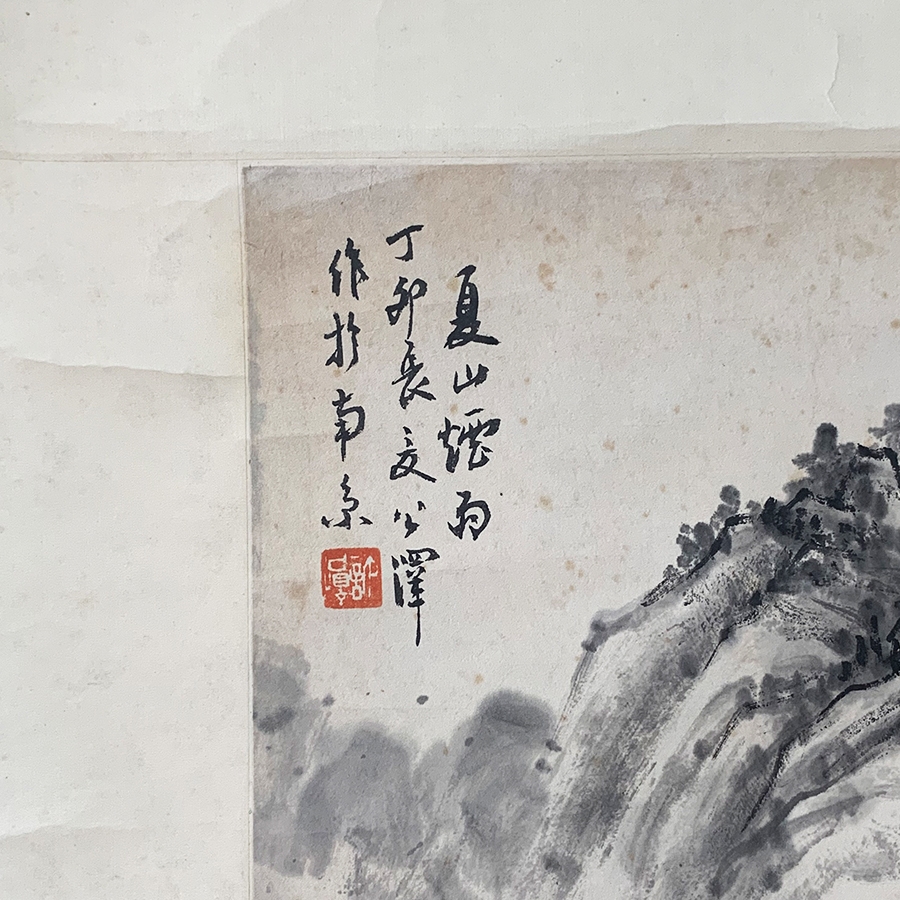 夏山煙雨
丁卯長夏公澤
作於南京